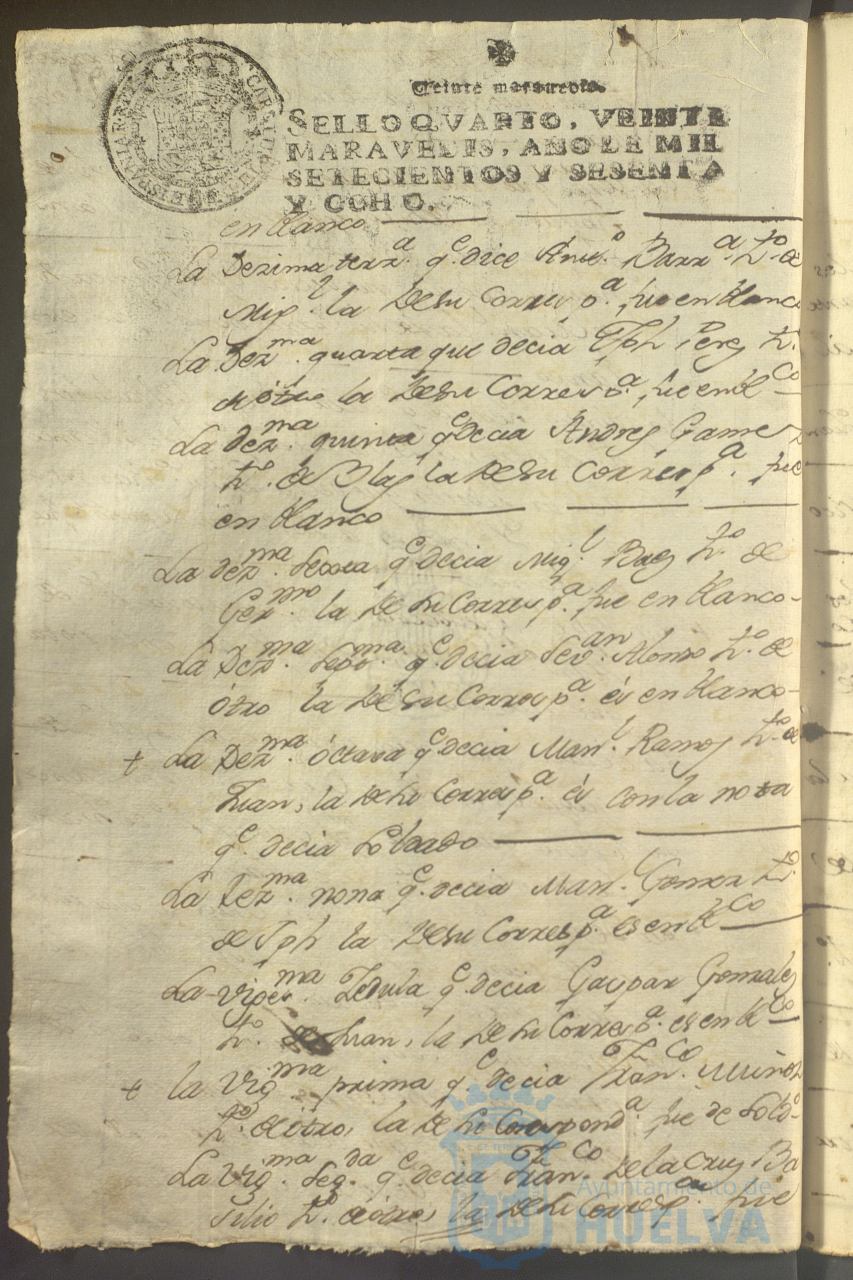 Veinte maravedis.
SELLO QVARTO, VEINTE
MARAVEDIS, AÑO DE MIL
SETECIENTOS Y SESENTA
Y OCHO.
en blanco
La Dezima terz.ª q.e dice Ant.º Barr.ª h.º de
Mig.l la de su Corresp.ª fue en blanco
La Dez.ma quarta que decia Jph Perez h.º
de otro la de su Corresp.ª fue en bl.co
La dez.ma quinta q.e decia Andres Gamez
h.º de Blas la de su Corresp.ª fue
en blanco
La dez.ma sexta q.e decia Mig.l Baez h.º de
Ger.mo la de su Corresp.ª fue en blanco-
La Dez.ma sept.ma q.e decia Sev.an Alonso h.º de
ótro la de su Corresp.ª és en blanco-
+ La Dez.ma óctava q.e decia Man.l Ramos h.º de
Juan, la de su Corresp.ª és con la nota
q.e decia Soldado
La Dez.ma nona q.e decia Man.l Gomez h.º
de Jph la de su Corresp.ª es en bl.co
La viges.ma Zedula q.e decia Gaspar Gonzales
h.º de Juan, la de su Corresp.ª es en bl.co
+ la Vig.ma prima q.e decia Fran.co Muñoz
h.º de otro, la de su Correspond.ª fue de Sold.º
La Vig.ma seg.da q.e decia Fran.co de la Cruz Ba
silio h.º de otro, la de su Corresp.ª fue
Ayuntamiento de
HUELVA